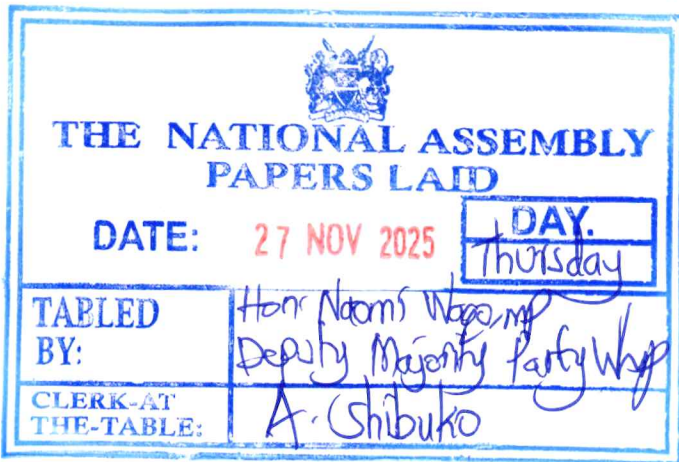 THE NATIONAL ASSEMBLY
PAPERS LAID
DATE: 27 NOV 2025
DAY.
Thursday
TABLED BY:
Hon. Naomi Waqo, MP
Deputy Majority Party Whip
CLERK-AT THE-TABLE:
A. Shibuko